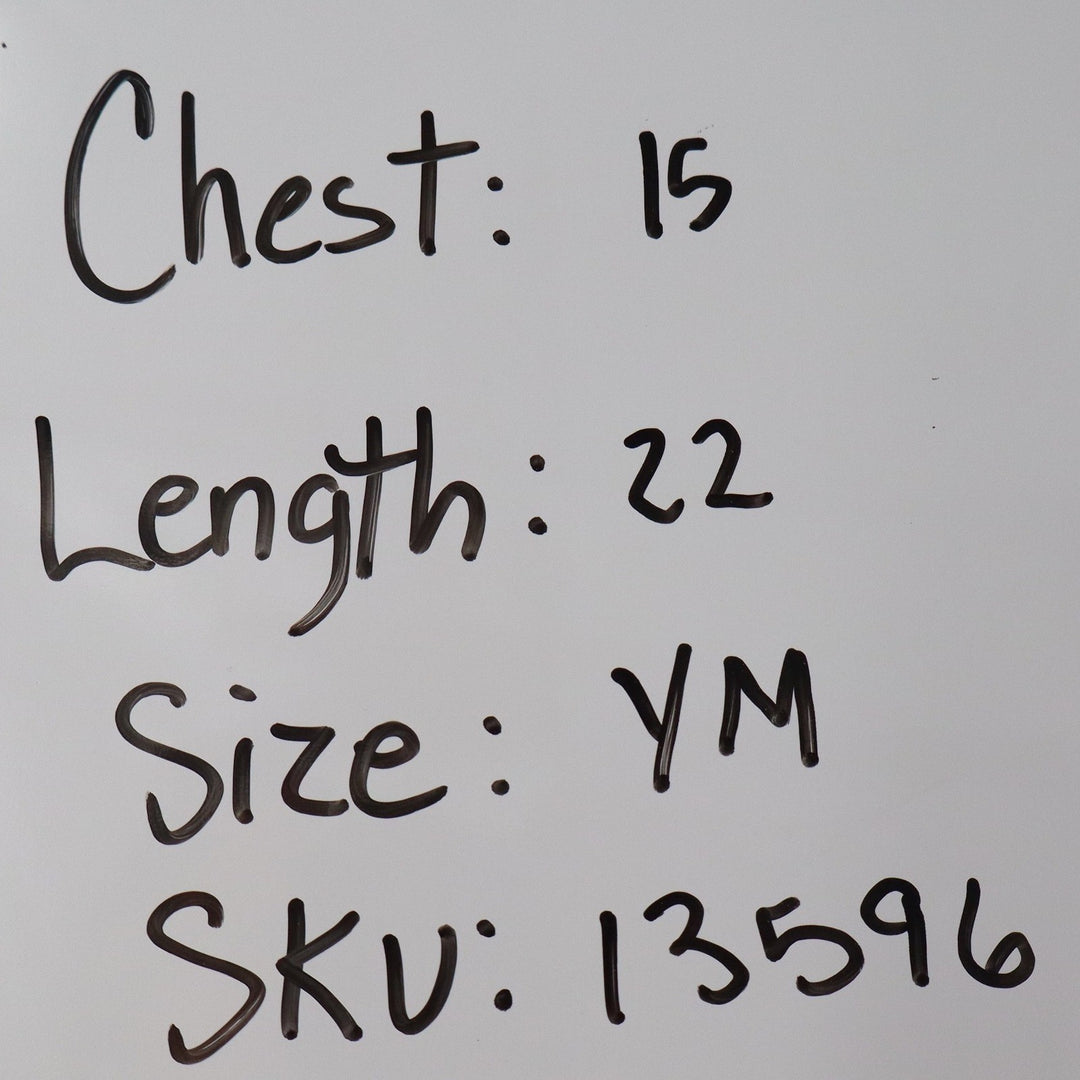 Chest: 15
Length: 22
Size: YM
SKU: 13596